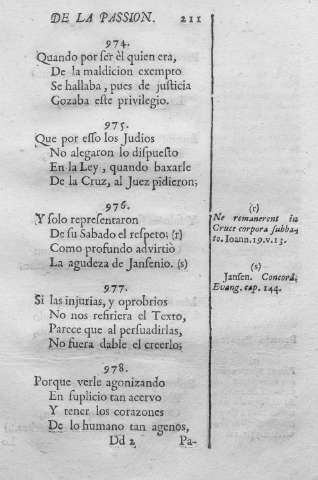 DE LA PASSION. 211
974.
Quando por ser èl quien era,
De la maldicion exempto
Se hallaba, pues de justicia
Gozaba este privilegio.
975.
Que por esso los Judios
No alegaron lo dispuesto
En la Ley, quando baxarle
De la Cruz, al Juez pidieron;
976.
Y solo representaron
De su Sabado el respeto: (r)
Como profundo advirtiò
La agudeza de Jansenio. (s)
977.
Si las injurias, y oprobrios
No nos refiriera el Texto,
Parece que al persuadirlas,
No fuera dable el creerlo;
978.
Porque verle agonizando
En suplicio tan acervo
Y tener los corazones
De lo humano tan agenos,
Dd 2 Pa-
(r)
Ne remanerent in
Cruce corpora subba-
to. Ioann. 19. v. 13.
(s)
Jansen. Concord.
Evang. cap. 144.